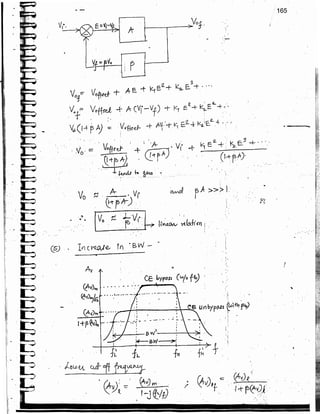 165
Vi E = Vi-Vf A Vof
Vf = βVo β
Vof = Voffset + AE + K1E² + K2E³ + ...
Vof = Voffset + A(Vi-Vf) + K1E² + K2E³ + ...
Vo(1+βA) = Voffset + AVi + K1E² + K2E³ + ...
Vo = Voffset/(1+βA) + (A/(1+βA)) Vi + (K1E² + K2E³ + ...)/(1+βA)
tends to zero
Vo ≈ A/(1+βA) Vi and βA >>> 1
∴ Vo ≈ 1/β Vi → linear relation
(5) Increase in BW -
Av
CE bypass (w/o fb)
(Av)m
(Av)m/√2
CE unbypass (with fb)
(Av)m
1+β(Av)m
BW'
BW
fL' fL fH fH' f
Lower cut off frequency
(Av)l = (Av)m / 1-j(fL/f) ; (Av)lf = (Av)l / 1+β(Av)l